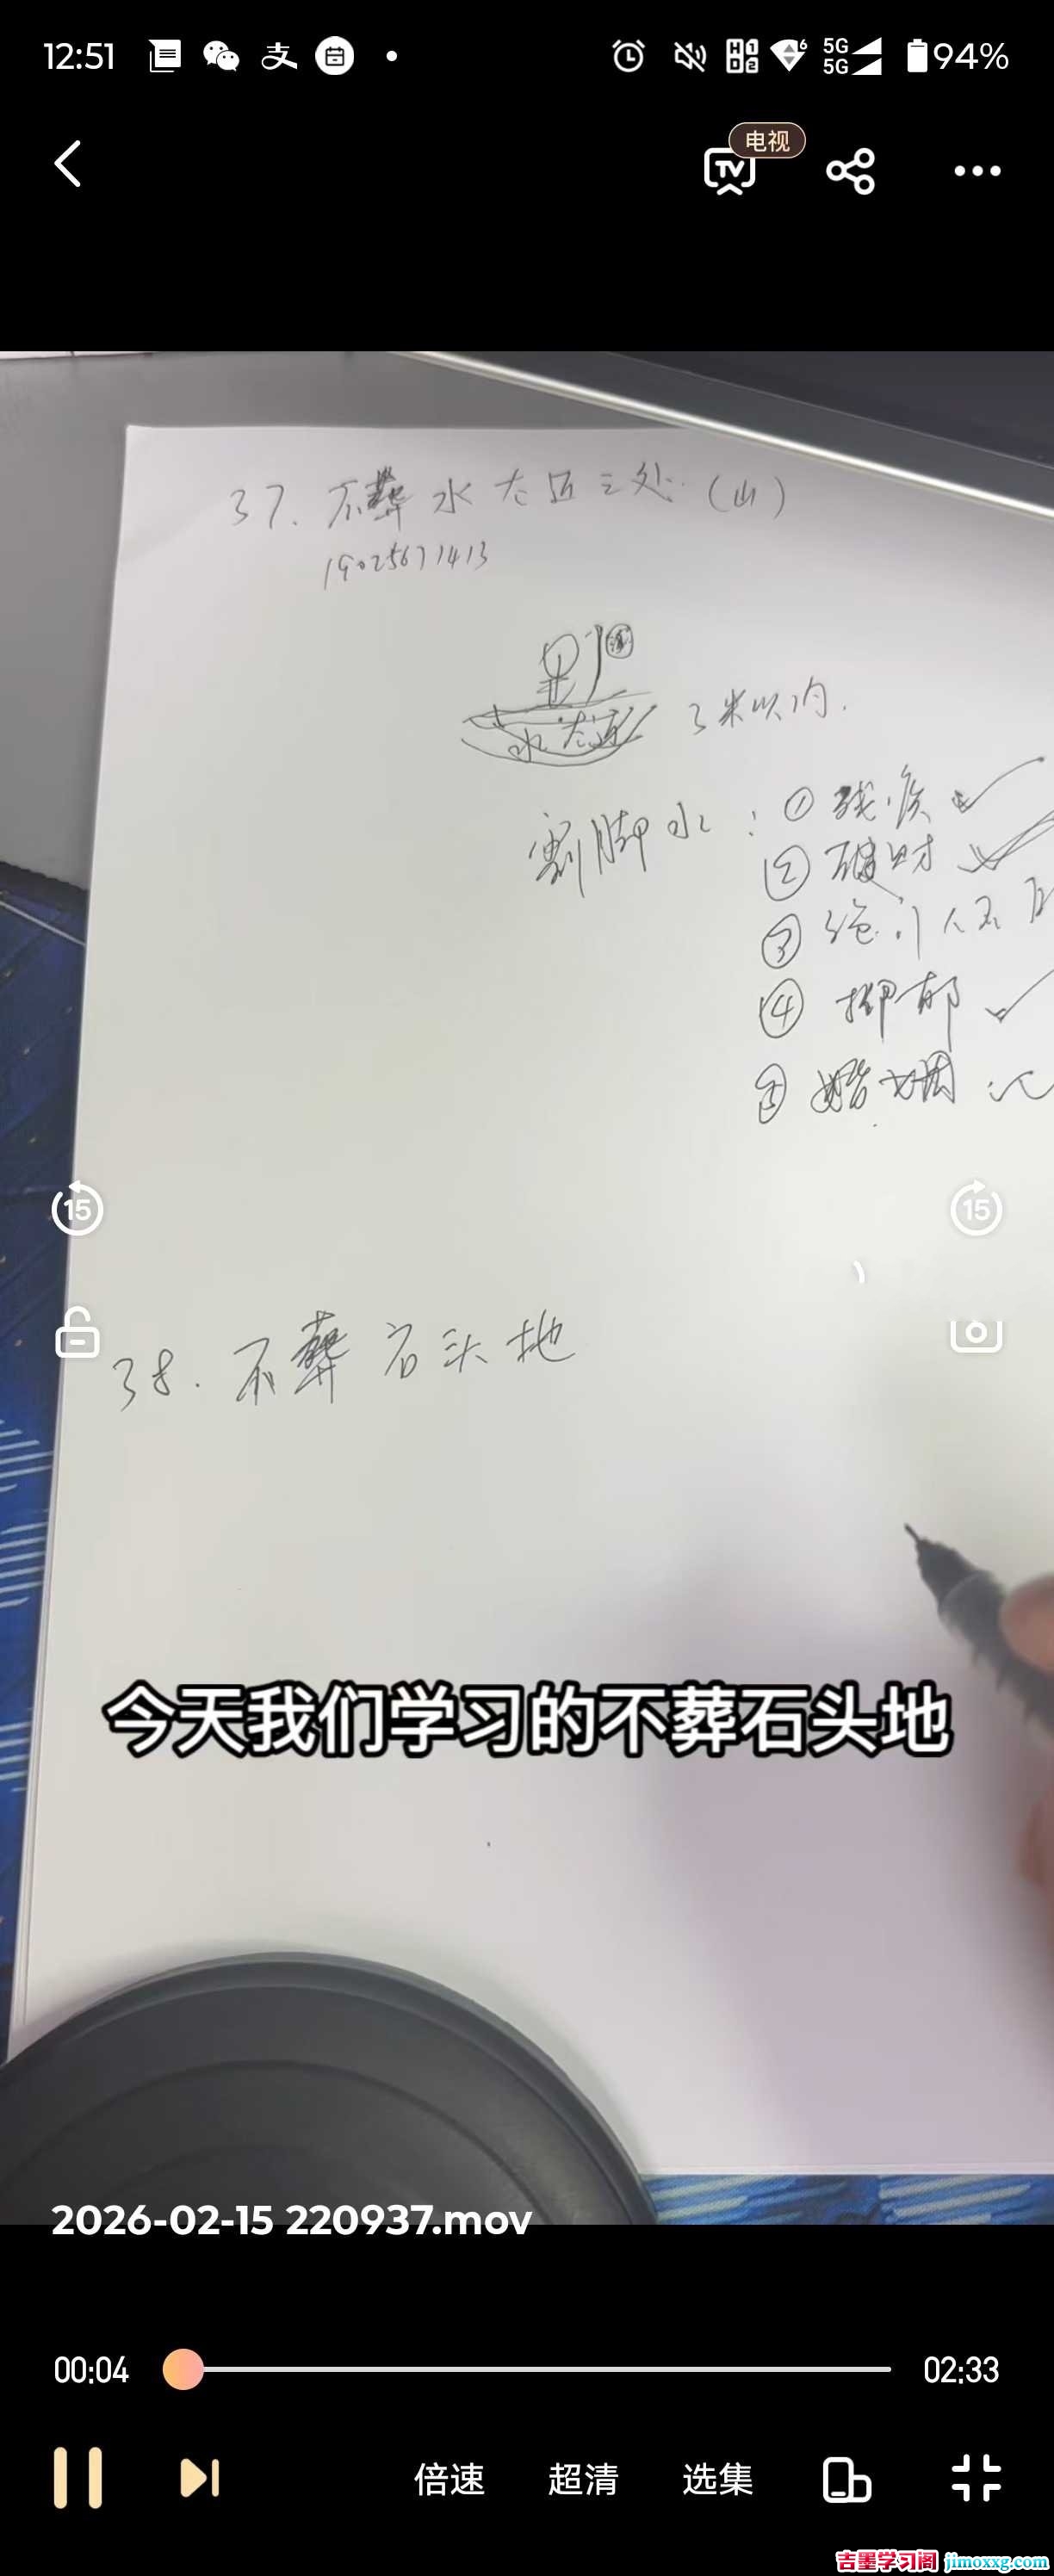 12:51
支
HD 1 2
6
5G
5G
94%
电视
TV
37. 不葬水太近之处 (山)
19025671413
水太近
3米以内.
割脚水: ①残疾
②破财
③绝门人不
④抑郁
⑤婚姻
15
15
38. 不葬石头地
今天我们学习的不葬石头地
2026-02-15 220937.mov
00:04
02:33
倍速
超清
选集
吉墨学习阁 jimoxxg.com